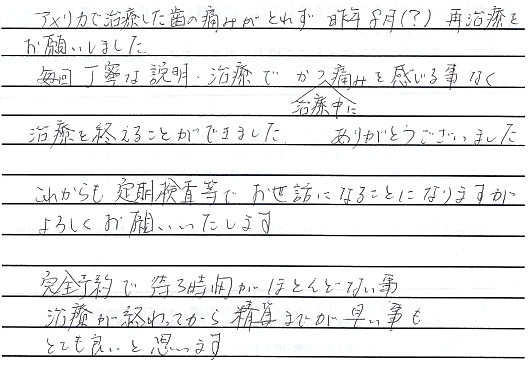 アメリカで治療した歯の痛みがとれず 昨年8月(?) 再治療を
お願いしました
毎回 丁寧な説明、治療で かつ痛みを感じる事なく
治療中に
治療を終えることができました。 ありがとうございました
これからも 定期検査等で お世話になることになりますが
よろしくお願いいたします
完全予約で 待ち時間が ほとんどない事
治療が終わってから 精算までが 早い事も
とても良いと思います